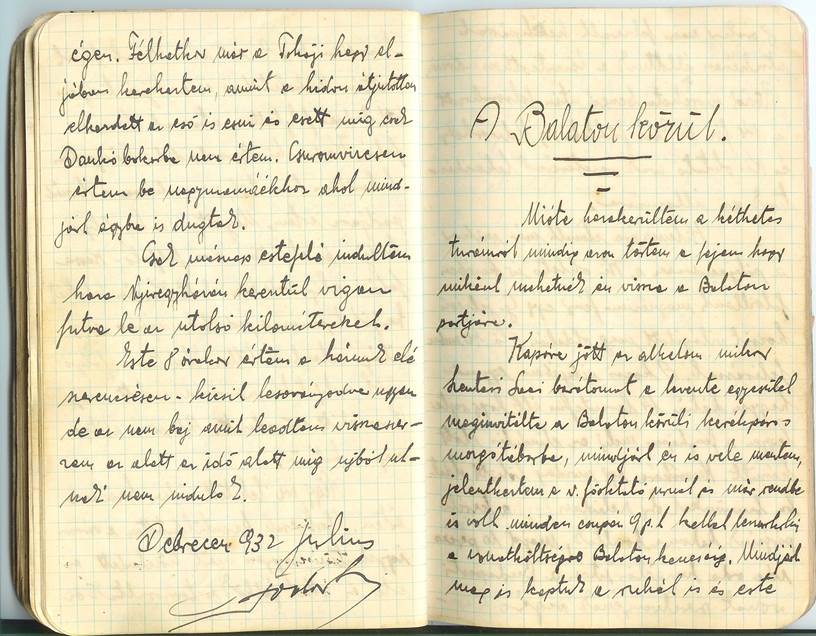 égen. Félhatkor már a Tokaji hegy al-
jában karekertem, amint a hidon átjutottam
elkezdett az eső is esni és esett míg csak
Dankó bokorba nem értem. Csuromvizesen
értem be nagymamáékhoz ahol mind-
járt ágyba is dugtak.
Csak másnap estefelé indultam
haza Nyiregyházán keresztül vigan
futva le az utolsó kilométereket.
Este 8 órakor értem a házunk elé
szerencsésen - kicsit lesoványodva ugyan
de az nem baj amit leadtam visszasze-
rem az alatt az idő alatt míg újból ut-
nak nem indulok.
Debrecen 932 julius
A Balaton körül.
Mióta hazakerültem a kéthetes
turámról mindig azon törtem a fejem hogy
miként mehetnék én vissza a Balaton
partjára.
Kapóra jött az alkalom mikor
Szentesi Laci barátomat a levente egyesület
meginvitálta a Balaton körüli kerékpáros
mozgótáborba, mindjárt én is vele mentem,
jelentkeztem a v. főoktató urnál és már rendbe
is volt minden csupán 9 p.-t kellett
a vonatköltségre Balatonkeneséig. Mindjárt
meg is kaptuk a ruhát is és este